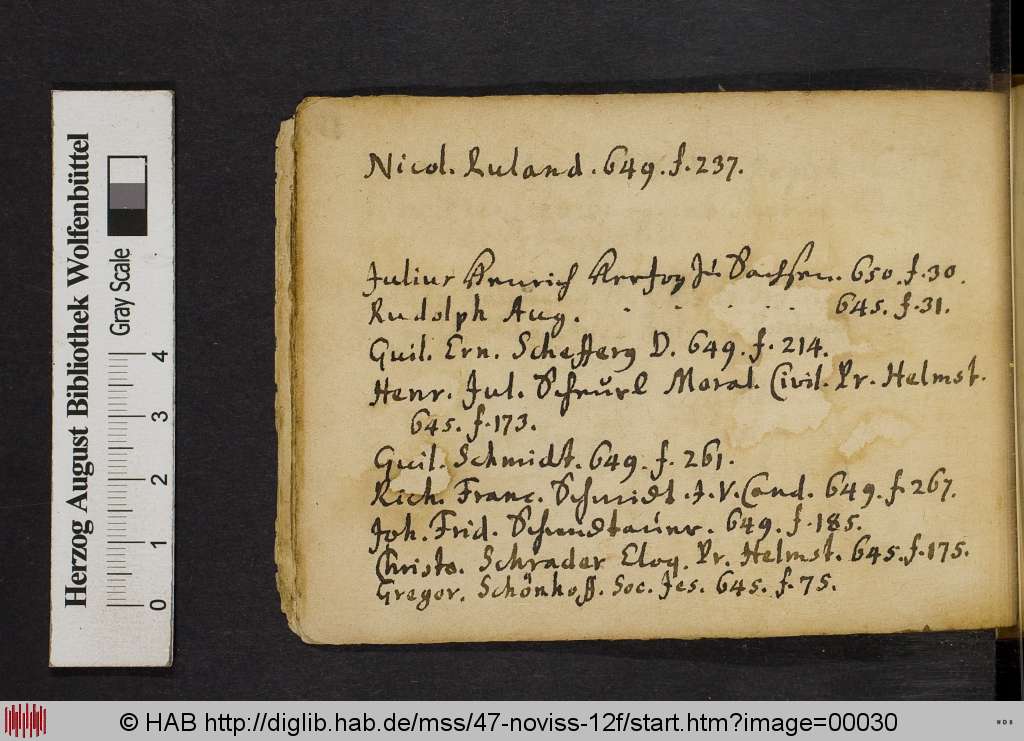 Nicol. Ruland. 649. f. 237.
Julius Henrich Hertzog zu Sachsen. 650. f. 30.
Rudolph Aug. . . . . . . 645. f. 31.
Guil. Ern. Scheffery D. 649. f. 214.
Henr. Jul. Scheurl Moral. Civil. Pr. Helmst.
645. f. 173.
Guil. Schmidt. 649. f. 261.
Rich. Franc. Schmidt. J. V. Cand. 649. f. 267.
Joh. Frid. 649. f. 185.
Christo. Schrader Eloq. Pr. Helmst. 645. f. 175.
Gregor. Schönhoff. Soc. Jes. 645. f. 75.
Herzog August Bibliothek Wolfenbüttel
Gray Scale
0 1 2 3 4
© HAB http://diglib.hab.de/mss/47-noviss-12f/start.htm?image=00030